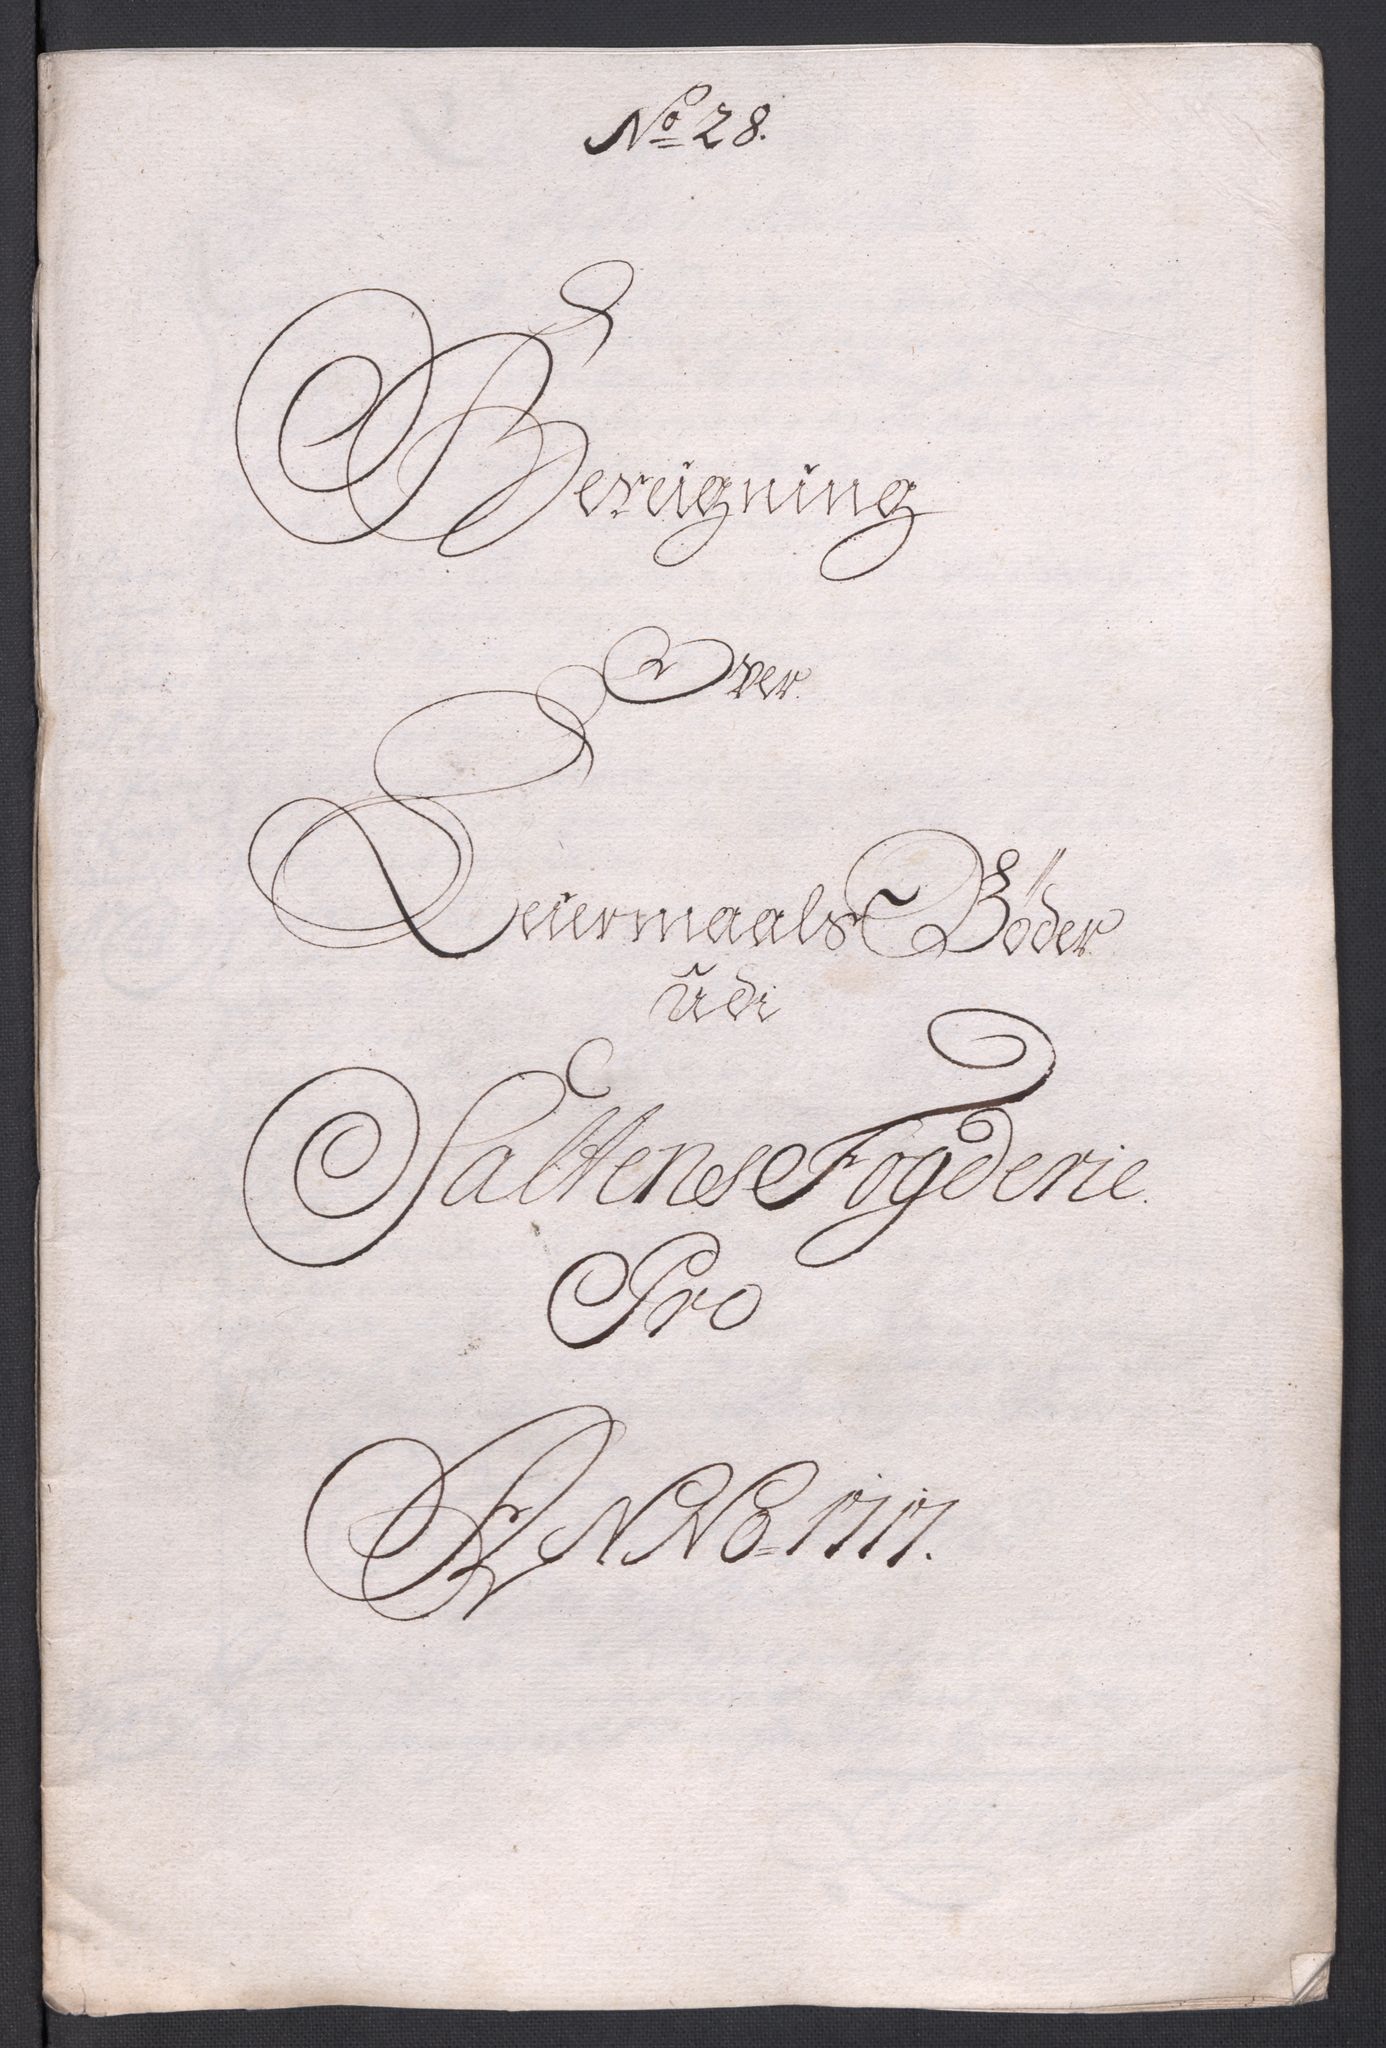 No 28.
Bereigning
Over
Leiermaals Bøder
udi
Saltens Fogderie.
Pro
ANNO 1717.